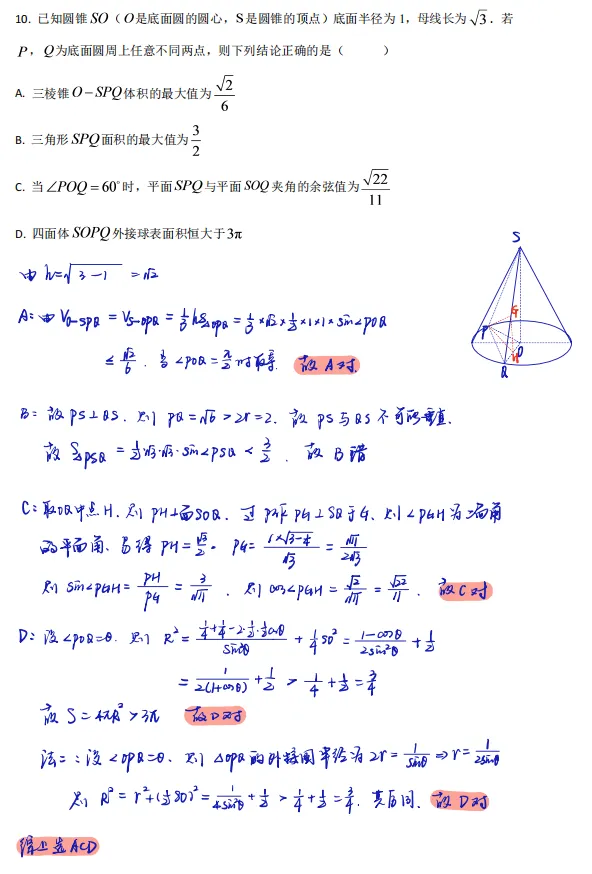 10. 已知圆锥 SO（O是底面圆的圆心，S是圆锥的顶点）底面半径为 1，母线长为 √3．若
P，Q为底面圆周上任意不同两点，则下列结论正确的是（　　）
A. 三棱锥 O－SPQ 体积的最大值为 √2/6
B. 三角形 SPQ 面积的最大值为 3/2
C. 当∠POQ＝60°时，平面 SPQ 与平面 SOQ 夹角的余弦值为 √22/11
D. 四面体 SOPQ 外接球表面积恒大于3π
S
G
P
O
H
Q
由 h=√(3-1) =√2
A：由 V_{O-SPQ} = V_{S-OPQ} = 1/3 hS_{△OPQ} = 1/3×√2×1/2×1×1×sin∠POQ
≤ √2/6．当∠POQ=π/2时取等．故A对．
B：故PS⊥QS．则 PQ=√6>2r=2．故PS与QS不可能垂直．
故 S_{△PSQ} = 1/2·√3·√3·sin∠PSQ < 3/2．故B错
C：取OQ中点H．则PH⊥面SOQ．过P作PG⊥SQ于G．则∠PGH为二面角
的平面角．易得PH=√3/2．PG= (1×√(3-1/4))/√3 = √11/(2√3)
则 sin∠PGH= PH/PG = 3/√11．则 cos∠PGH = √2/√11 = √22/11．故C对
D：设∠POQ=θ．则 R²= (1/4+1/4-2·1/2·1/2cosθ)/sin²θ + 1/4 SO² = (1-cosθ)/(2sin²θ) + 1/2
= 1/(2(1+cosθ)) + 1/2 > 1/4+1/2=3/4
故 S=4πR²>3π 故D对
法二：设∠OPQ=θ．则△OPQ的外接圆半径为 2r= 1/sinθ ⇒ r= 1/(2sinθ)
则 R²=r²+(1/2 SO)²= 1/(4sin²θ) + 1/2 > 1/4+1/2=3/4．其后同．故D对
综上选ACD